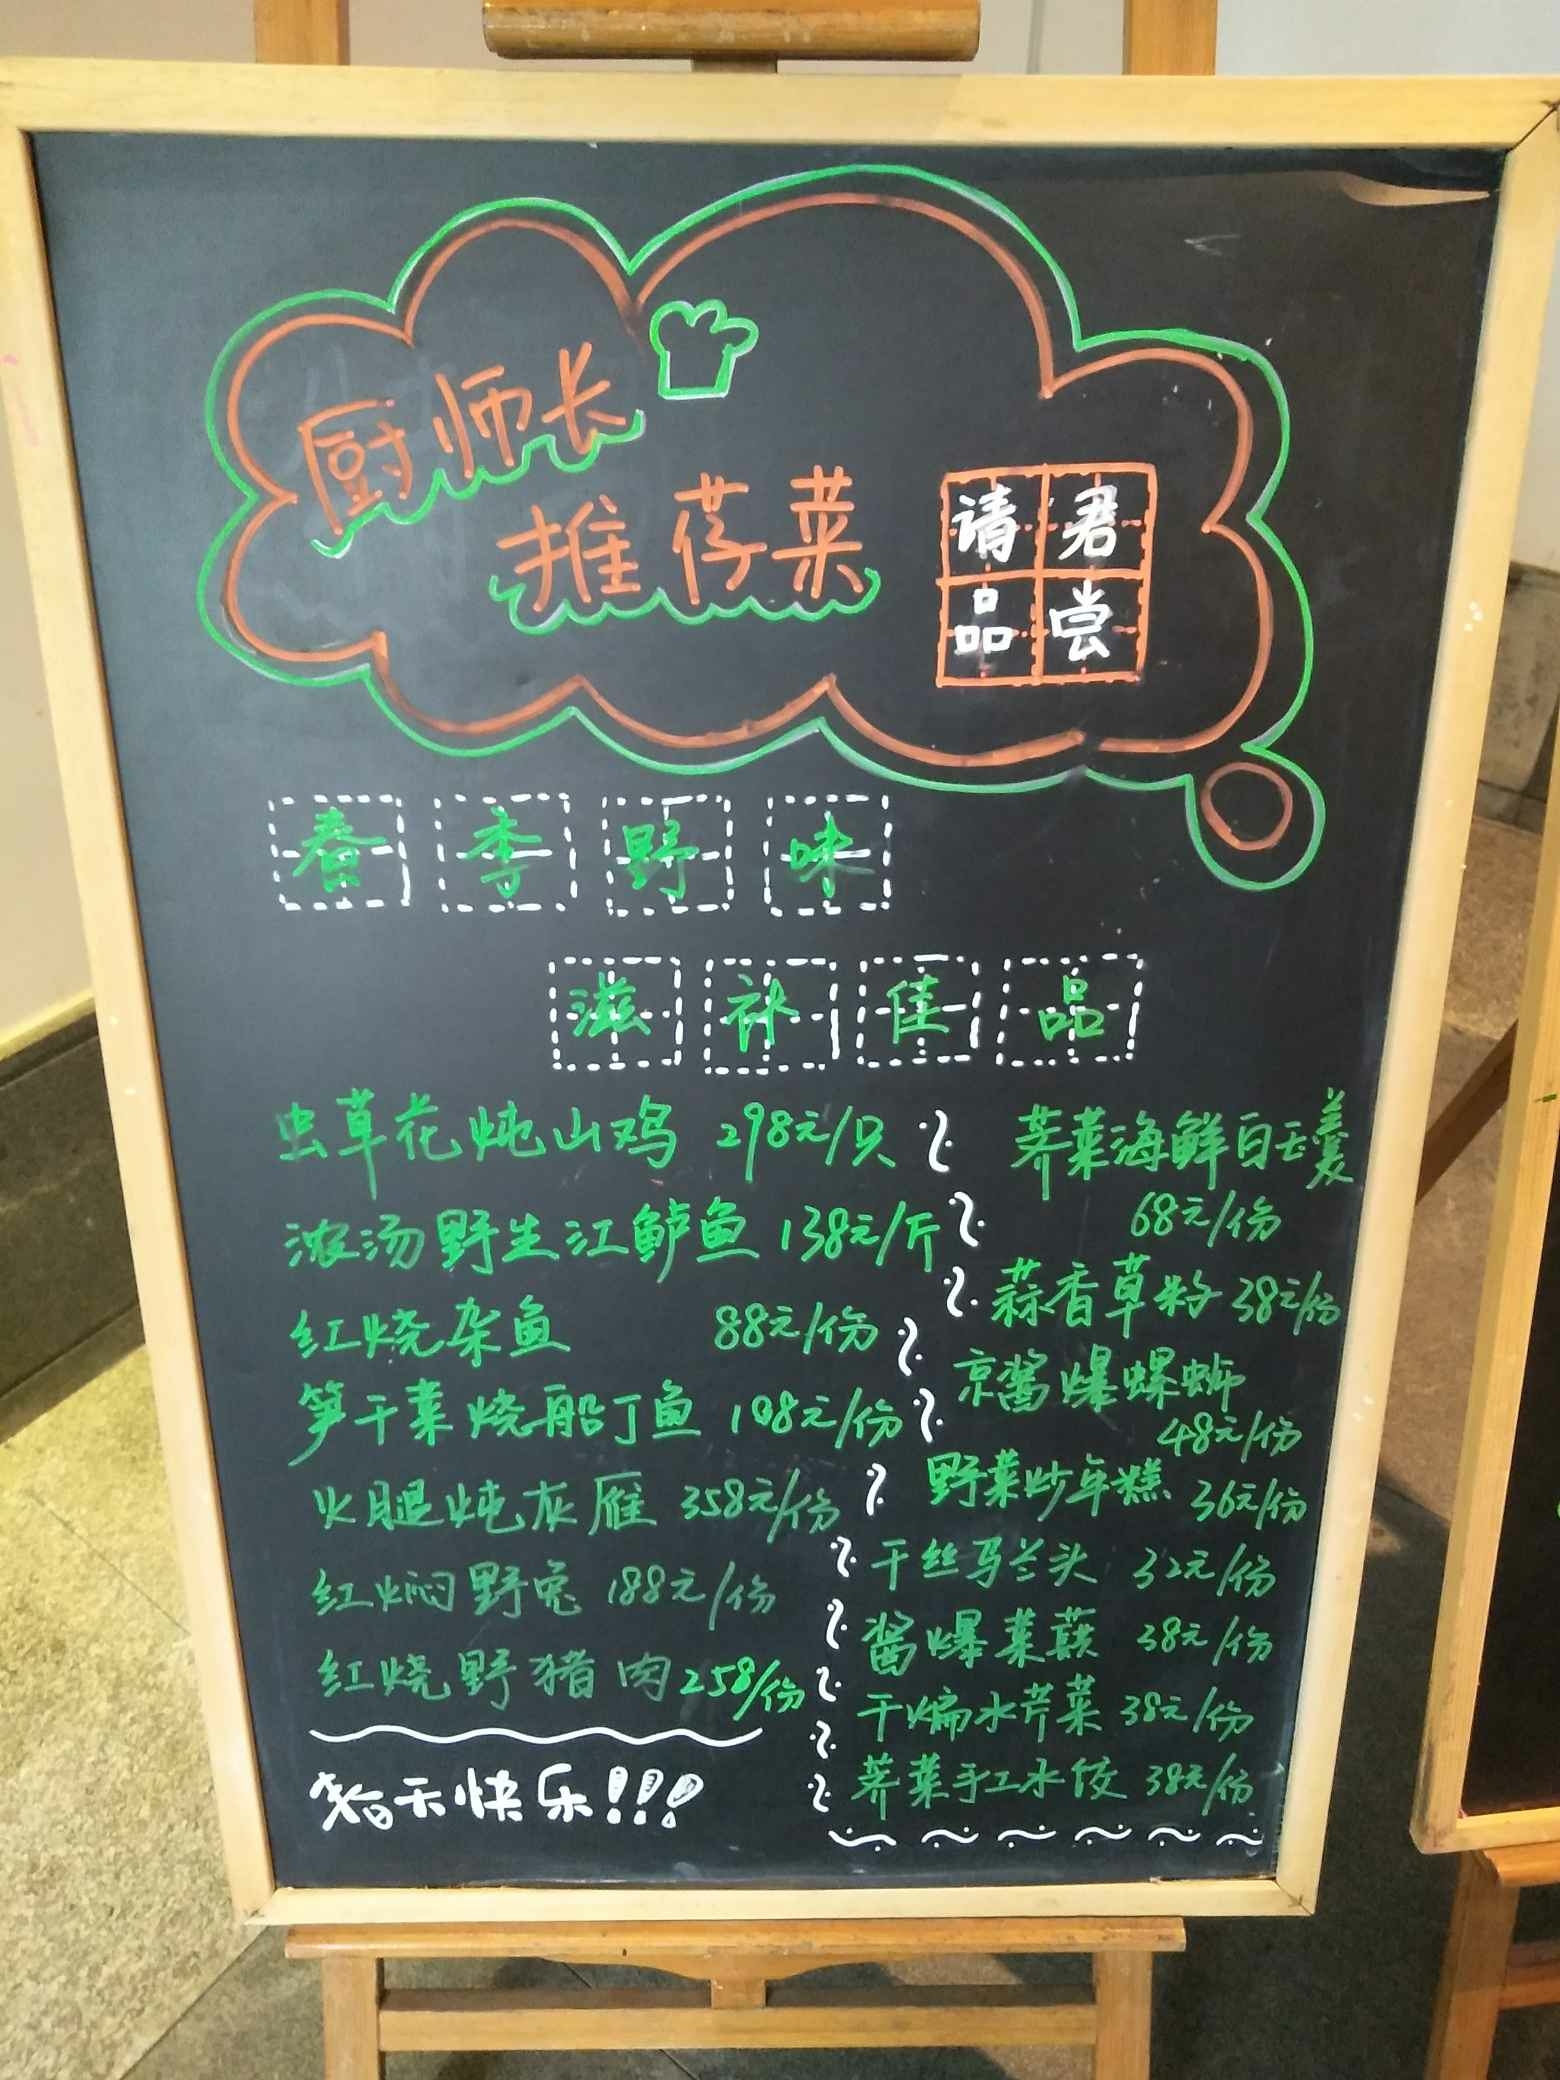 厨师长
推荐菜
请君
品尝
春季野味
滋补佳品
虫草花炖山鸡 298元/只
浓汤野生江鲈鱼 138元/斤
红烧杂鱼 88元/份
笋干菜烧船丁鱼 108元/份
火腿炖灰雁 358元/份
红焖野兔 188元/份
红烧野猪肉 258/份
春天快乐!!!
荠菜海鲜白玉羹
68元/份
蒜香草籽 38元/份
京酱爆螺蛳
48元/份
野菜炒年糕 36元/份
干丝马兰头 32元/份
酱爆菜蕻 38元/份
干煸水芹菜 38元/份
荠菜手工水饺 38元/份